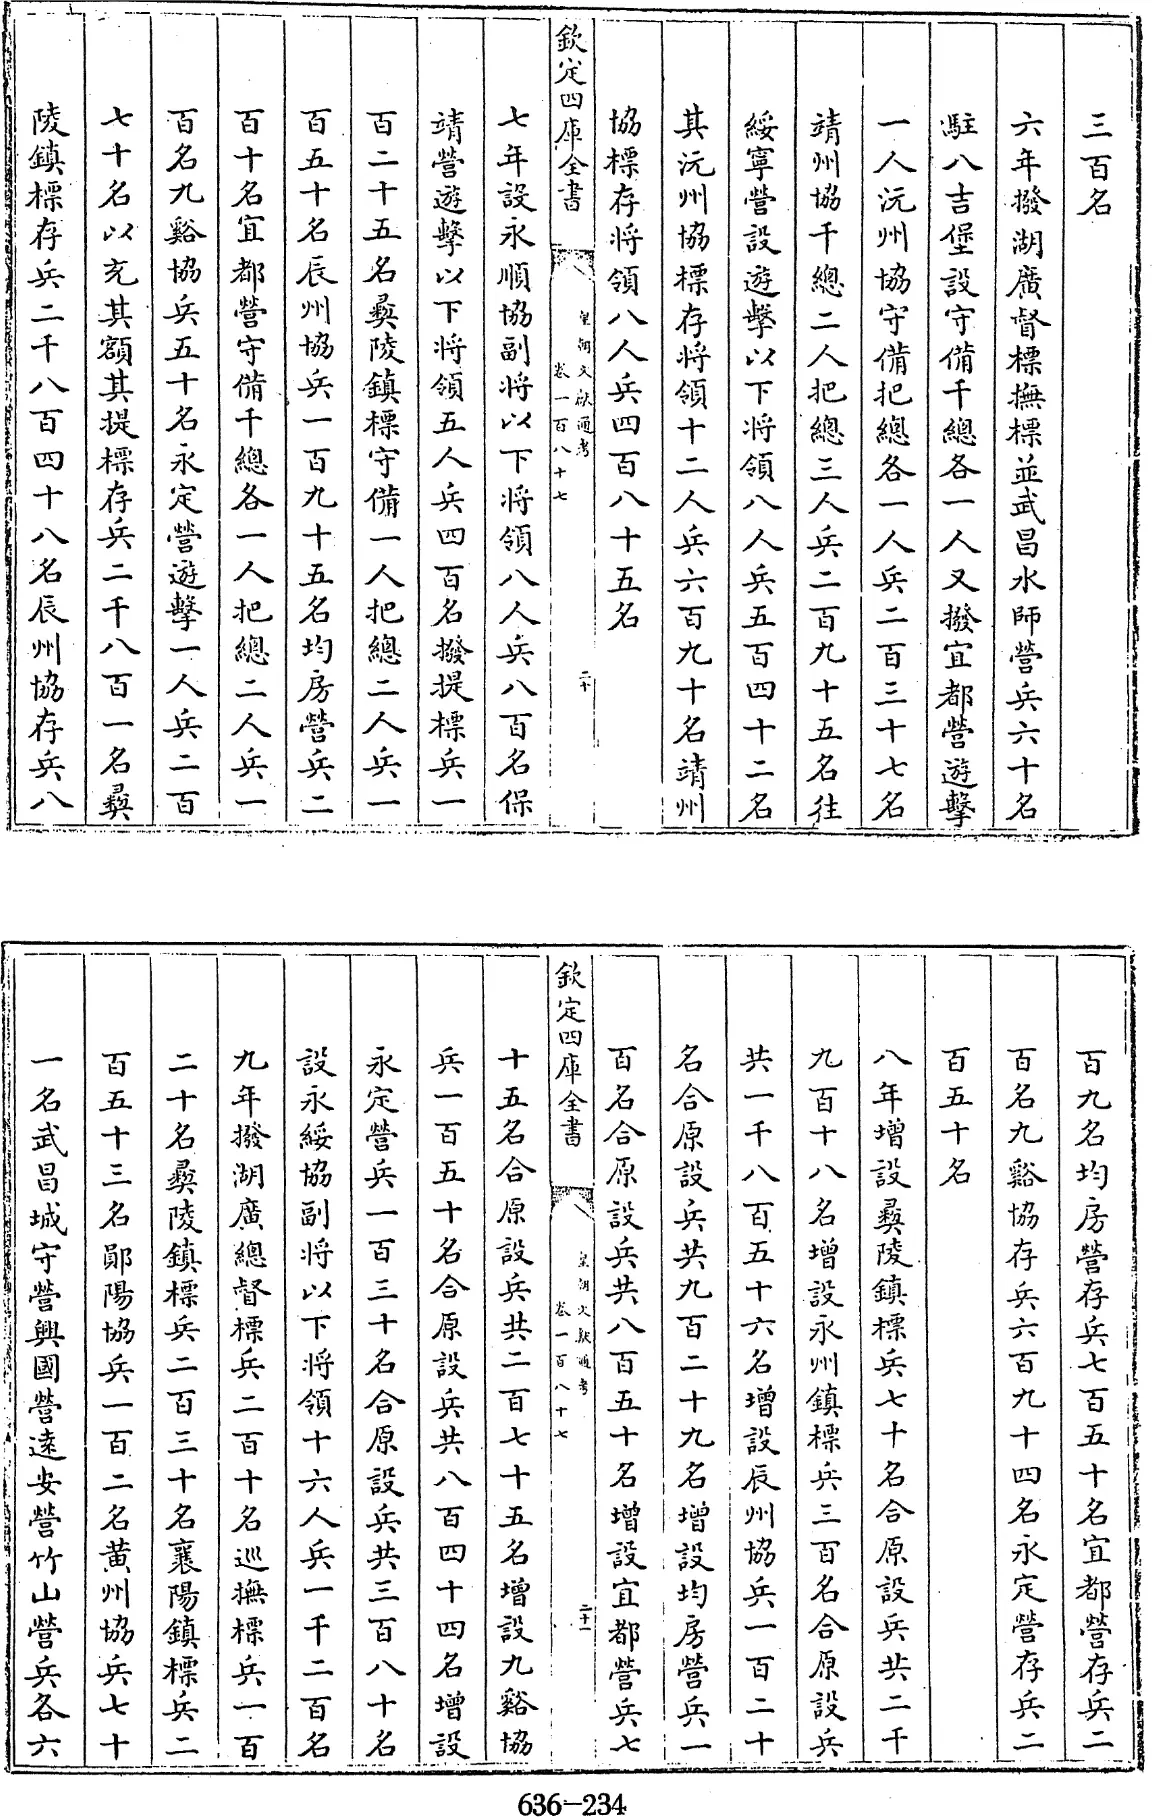 三百名
六年撥湖廣督標撫標並武昌水師營兵六十名
駐八吉堡設守備千總各一人又撥宜都營遊擊
一人沅州協守備把總各一人兵二百三十七名
靖州協千總二人把總三人兵二百九十五名往
綏寧營設遊擊以下將領八人兵五百四十二名
其沅州協標存將領十二人兵六百九十名靖州
協標存將領八人兵四百八十五名
欽定四庫全書
皇朝文獻通考
卷一百八十七
二十
七年設永順協副將以下將領八人兵八百名保
靖營遊擊以下將領五人兵四百名撥提標兵一
百二十五名彞陵鎮標守備一人把總二人兵一
百五十名辰州協兵一百九十五名均房營兵二
百十名宜都營守備千總各一人把總二人兵一
百名九谿協兵五十名永定營遊擊一人兵二百
七十名以充其額其提標存兵二千八百一名彞
陵鎮標存兵二千八百四十八名辰州協存兵八
百九名均房營存兵七百五十名宜都營存兵二
百名九谿協存兵六百九十四名永定營存兵二
百五十名
八年增設彞陵鎮標兵七十名合原設兵共二千
九百十八名增設永州鎮標兵三百名合原設兵
共一千八百五十六名增設辰州協兵一百二十
名合原設兵共九百二十九名增設均房營兵一
百名合原設兵共八百五十名增設宜都營兵七
欽定四庫全書
皇朝文獻通考
卷一百八十七
二十一
十五名合原設兵共二百七十五名增設九谿協
兵一百五十名合原設兵共八百四十四名增設
永定營兵一百三十名合原設兵共三百八十名
設永綏協副將以下將領十六人兵一千二百名
九年撥湖廣總督標兵二百十名巡撫標兵一百
二十名彞陵鎮標兵二百三十名襄陽鎮標兵二
百五十三名鄖陽協兵一百二名黄州協兵七十
一名武昌城守營興國營逺安營竹山營兵各六
636-234